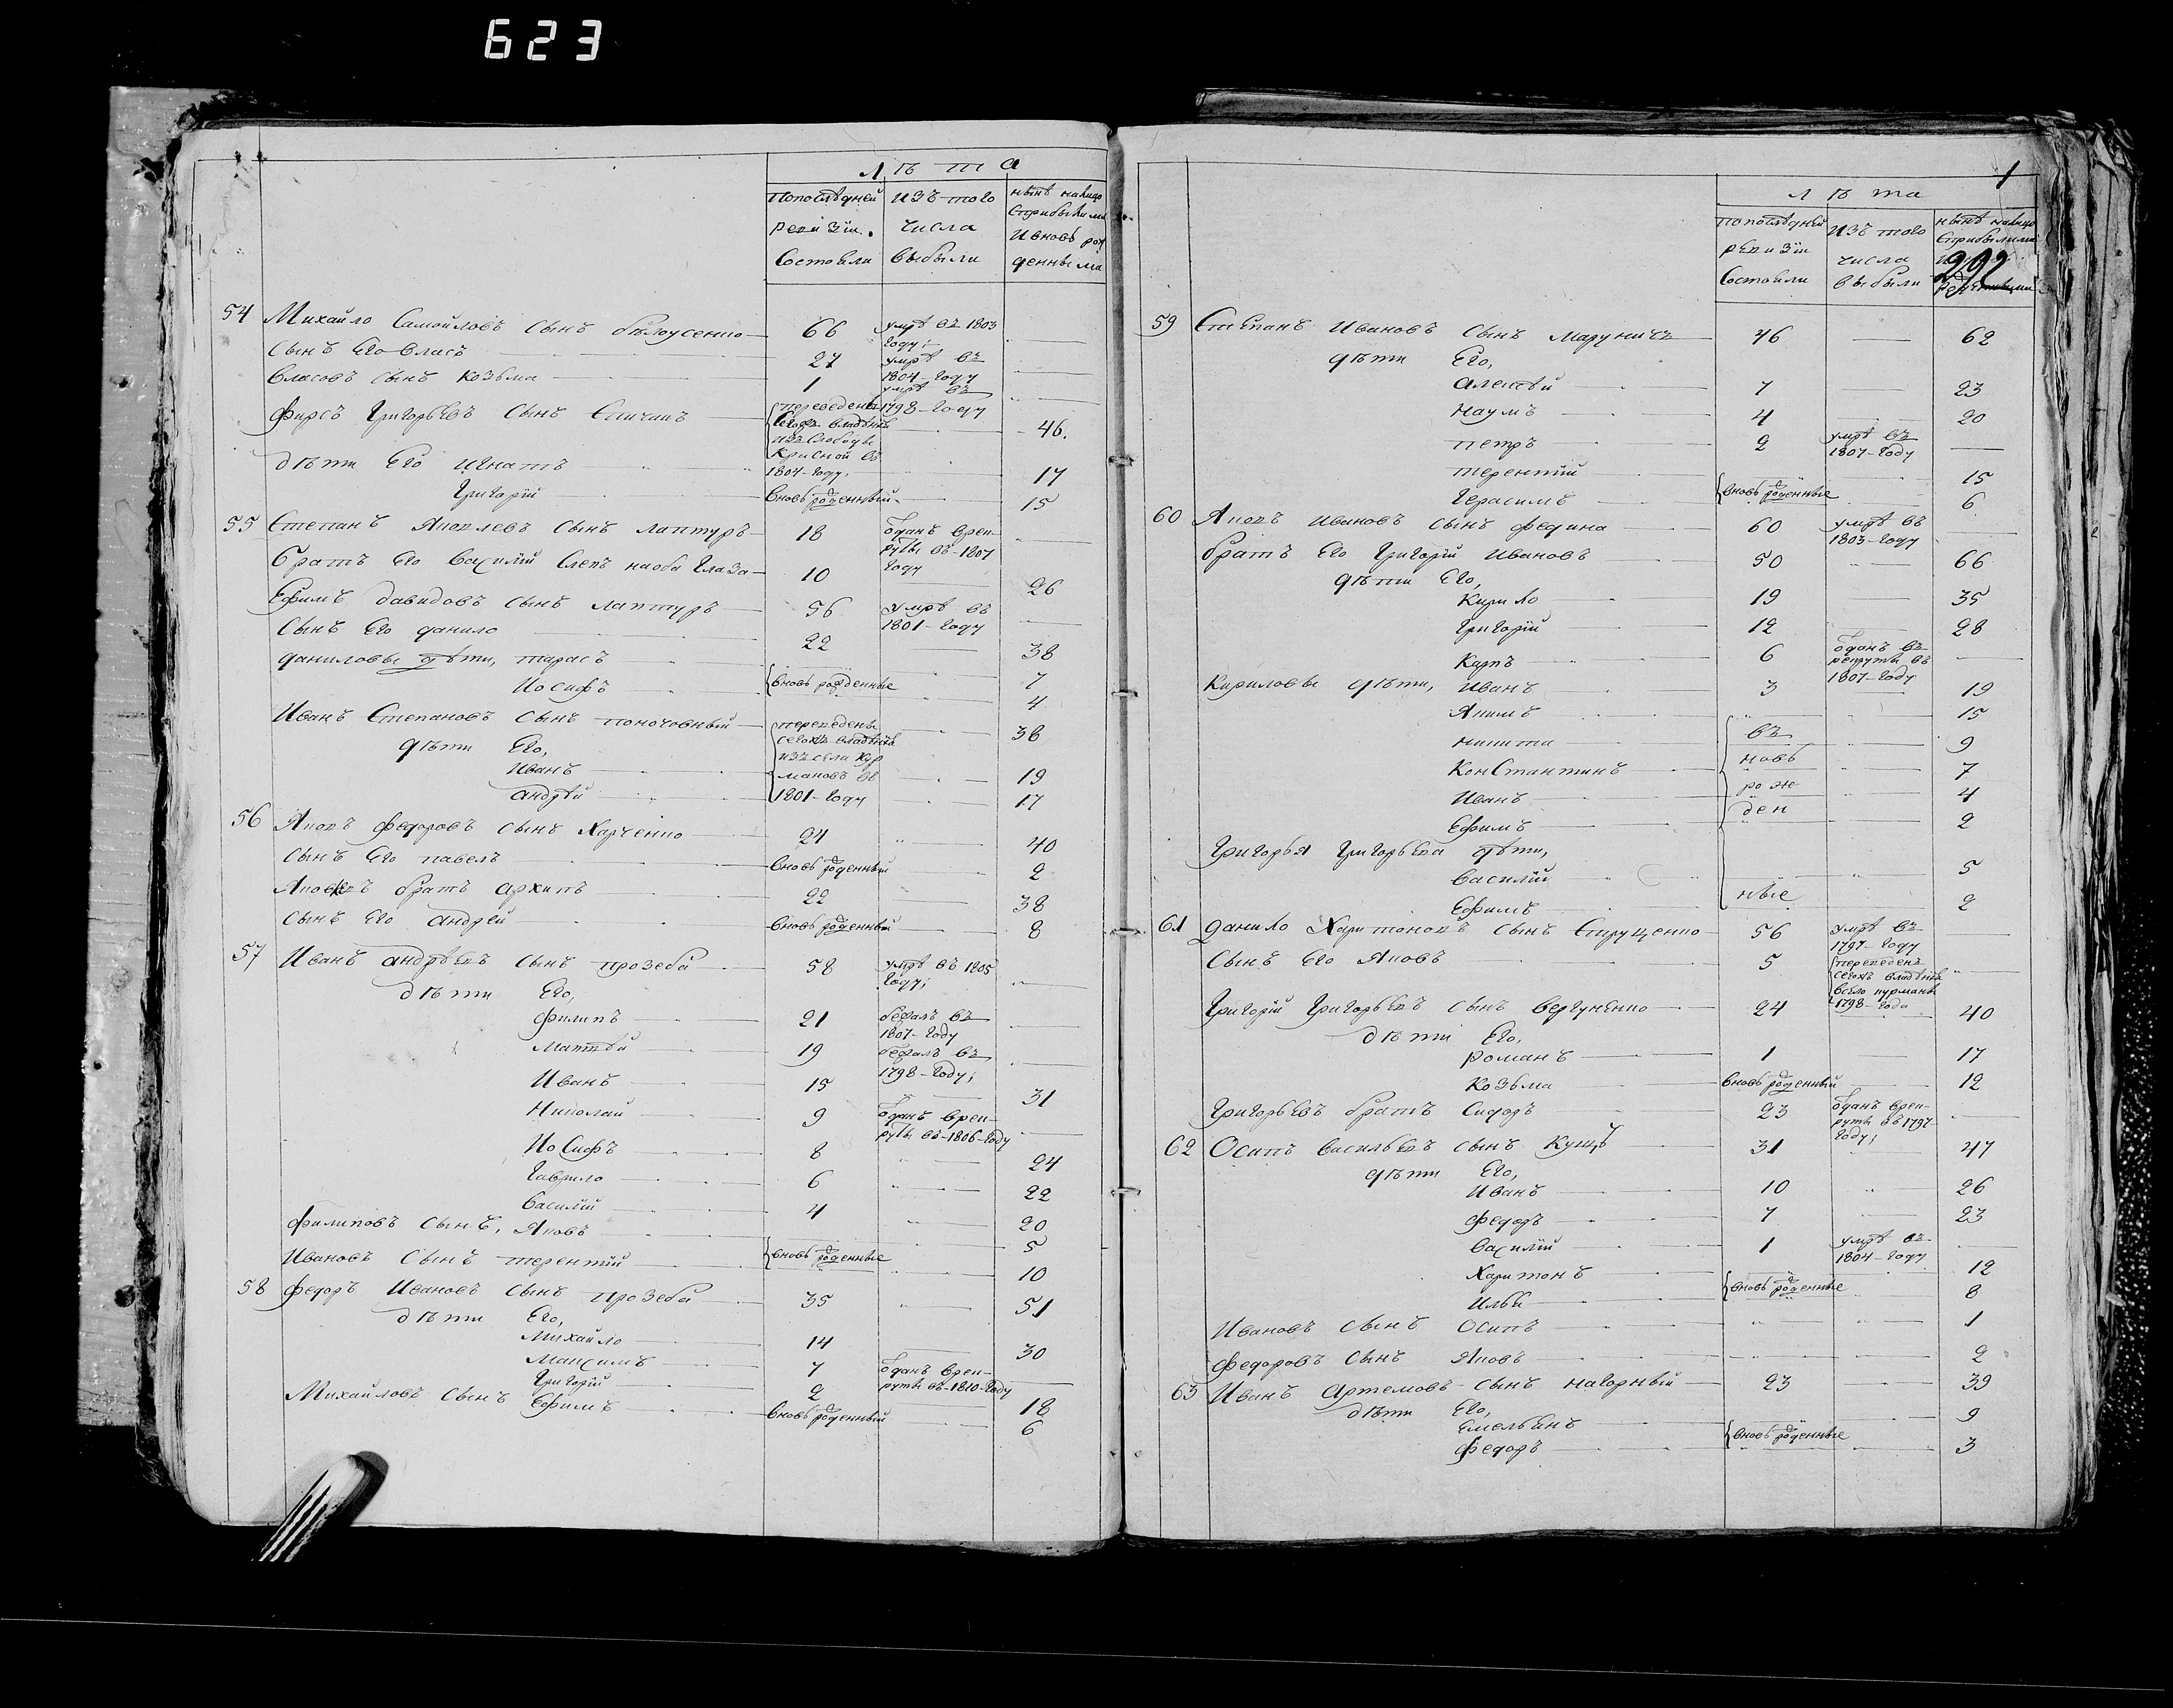 623
Лѣта
Попослѣдней ревизіи состояли
Изъ того числа выбыли
нынѣ налицо сприбылими ивновь рожденными
54 Михайло Самойловъ сынъ бѣлоусенко 66 умрѣ въ 1803 году;
сынъ Его власъ 27 умрѣ въ 1804-году
власовъ сынъ козьма 1 умрѣ въ 1798-году
фирсъ Григорьевъ сынъ переведены сегожъ владѣнія изъ слободы красной въ 1804-году. 46.
дѣти Его игнатъ 17
Григорій вновь рожденный 15
55 Степанъ Яковлевъ сынъ лаптуръ 18 отданъ врекруты въ-1807 году
братъ Его василій слепъ наоба глаза 10 26
Ефимъ давидовъ сынъ лаптуръ 56 умрѣ въ 1801-году
сынъ Его данило 22 38
даниловы дѣти, тарасъ 7
Иосифъ вновь рожденные 4
Иванъ Степановъ сынъ переведены сегожъ владѣнія изъ села въ 1801-году 36
дѣти Его,
Иванъ 19
андрѣй 17
56 Яковъ федоровъ сынъ Харченко 24 40
сынъ Его павелъ вновь рожденный 2
Яковлевъ братъ архипъ 22 38
сынъ Его андрей вновь рожденный 8
57 Иванъ андрѣевъ сынъ прозеба 58 умрѣ въ 1805 году;
дѣти Его,
филипъ 21 бежалъ въ 1807-году
Матвѣй 19 бежалъ въ 1798-году;
Иванъ 15 31
Николай 9 отданъ врекруты въ-1806-году
Иосифъ 8 24
Гаврило 6 22
василій 4 20
филиповъ сынъ, Яковъ 5
Ивановъ сынъ терентій вновь рожденные 10
58 федоръ Ивановъ сынъ прозеба 35 51
дѣти Его,
Михайло 14 30
Максимъ 7 отданъ врекруты въ-1810-году
Григорій 2 18
Михайловъ сынъ Ефимъ вновь рожденный 6
1
Лѣта
попослѣдней ревизіи состояли
Изъ того числа выбыли
нынѣ налицо сприбылими
292
59 Степанъ Ивановъ сынъ маруничъ 46 62
дѣти Его,
алексѣй 7 23
наумъ 4 20
петръ 2 умрѣ въ 1807-году
терентій 15
герасимъ вновь рожденные 6
60 Яковъ Ивановъ сынъ федина 60 умрѣ въ 1803-году
братъ Его Григорій Ивановъ 50 66
дѣти Его,
Кирило 19 35
Григорій 12 28
Карпъ 6 отданъ въ рекруты въ 1807-году
Кириловы дѣти, Иванъ 3 19
Якимъ 15
никита въ 9
Константинъ новь 7
Иванъ рож 4
Ефимъ ден 2
Григорья Григорьева дѣти,
василій 5
Ефимъ ные 2
61 данило Харитоновъ сынъ 56 умрѣ въ 1797-году
сынъ Его Яковъ 5 переведенъ сегожъ владѣнія всело 1798-года
Григорій Григорьевъ сынъ вергуненко 24 40
дѣти Его,
романъ 1 17
Козьма вновь рожденный 12
Григорьевъ братъ Сидоръ 23 отданъ врекруты въ 1797-году;
62 Осипъ васильевъ сынъ Куцъ 31 47
дѣти Его,
Иванъ 10 26
федоръ 7 23
василій 1 умрѣ въ 1804-году
Харитонъ 12
Илья вновь рожденные 8
Ивановъ сынъ Осипъ 1
федоровъ сынъ Яковъ 2
63 Иванъ артемовъ сынъ нагорный 23 39
дѣти Его,
Емельянъ 9
федоръ вновь рожденные 3